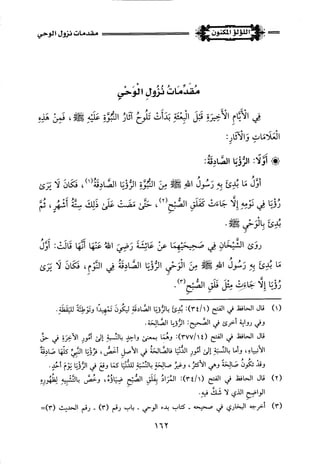 اللؤلؤ المكنون
مقدمات نزول الوحي
مُقَدِّمَاتُ نُزُولِ الْوَحْيِ
فِي الْأَيَّامِ الْأَخِيرَةِ قَبْلَ الْبِعْثَةِ بَدَأَتْ تَلُوحُ آثَارُ النُّبُوَّةِ عَلَيْهِ ﷺ، فَمِنْ هَذِهِ
الْعَلَامَاتِ وَالْآثَارِ:
أَوَّلًا: الرُّؤْيَا الصَّادِقَةُ:
أَوَّلُ مَا بُدِئَ بِهِ رَسُولُ اللهِ ﷺ مِنَ النُّبُوَّةِ الرُّؤْيَا الصَّادِقَةُ(١)، فَكَانَ لَا يَرَى
رُؤْيَا فِي نَوْمِهِ إِلَّا جَاءَتْ كَفَلَقِ الصُّبْحِ(٢)، حَتَّى مَضَتْ عَلَى ذَلِكَ سِتَّةُ أَشْهُرٍ، ثُمَّ
بُدِئَ بِالْوَحْيِ ﷺ.
رَوَى الشَّيْخَانِ فِي صَحِيحَيْهِمَا عَنْ عَائِشَةَ رَضِيَ اللهُ عَنْهَا أَنَّهَا قَالَتْ: أَوَّلُ
مَا بُدِئَ بِهِ رَسُولُ اللهِ ﷺ مِنَ الْوَحْيِ الرُّؤْيَا الصَّادِقَةُ فِي النَّوْمِ، فَكَانَ لَا يَرَى
رُؤْيَا إِلَّا جَاءَتْ مِثْلَ فَلَقِ الصُّبْحِ(٣).
(١) قال الحافظ في الفتح (٣٤/١): بُدِئَ بالرُّؤيَا الصادقةِ ليكُونَ تَمهِيدًا وتَوْطِئَةً لليَقَظَةِ.
وفي رواية أخرى في الصحيح: الرؤيا الصالحة.
قال الحافظ في الفتح (٣٧٧/١٤): وهُمَا بمعنى واحِدٍ بالنِّسبةِ إلى أمُورِ الآخِرَةِ في حَقِّ
الأنبياءِ، وأما بالنِّسبَةِ إلى أمُورِ الدُّنيَا فالصالحَةُ في الأصلِ أخَصُّ، فرُؤيَا النَّبِيِّ كلُّهَا صادِقَةٌ
وقد تكُونُ صالحةً وهي الأكثَرُ، وغيرَ صالِحَةٍ بالنِّسبَةِ للدُّنيَا كما وقَعَ في الرُّؤيَا يَومَ أُحُدٍ.
(٢) قال الحافظ في الفتح (٣٤/١): المُرَادُ بفَلَقِ الصُّبْحِ ضِيَاؤُهُ، وخُصَّ بالتَّشبِيهِ لِظُهُورِهِ
الواضِحِ الذي لا شَكَّ فيهِ.
(٣) أخرجه البخاري في صحيحه - كتاب بدء الوحي - باب رقم (٣) - رقم الحديث (٣)=
١٦٢